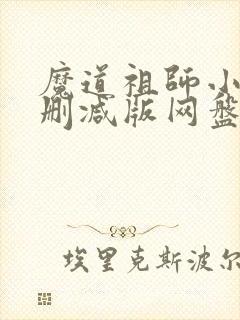 魔道祖师小
删减版网盘
埃里克斯波尔